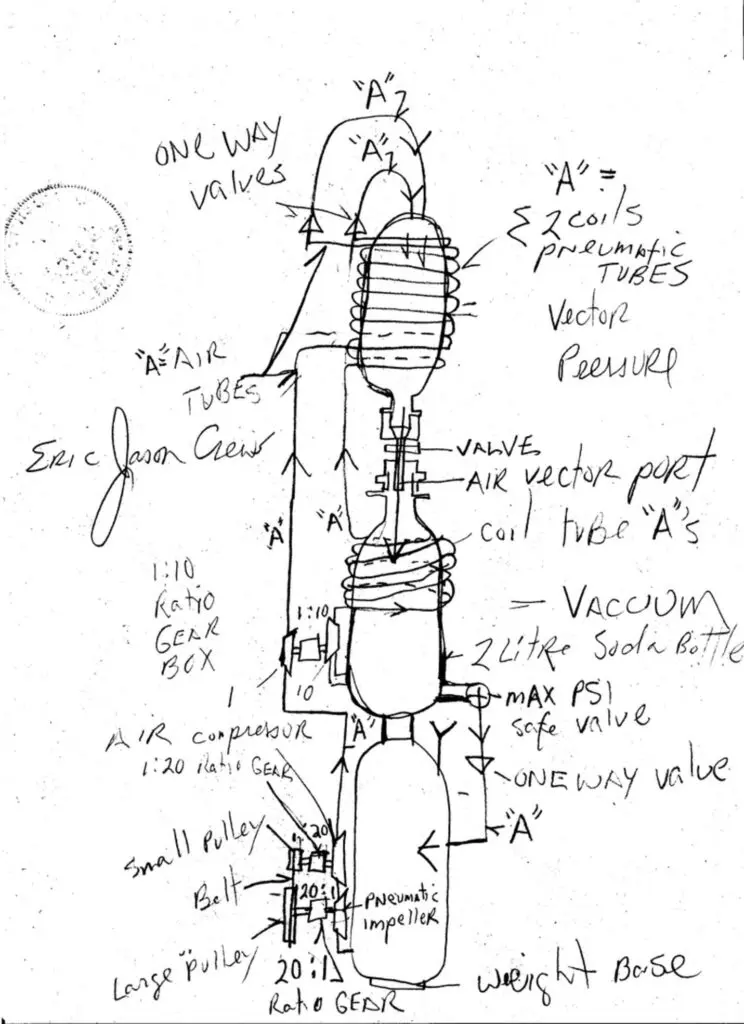 "A"
ONE WAY
valves
"A"
"A" =
2 coils
pneumatic
TUBES
Vector
Peessure
"A" = AIR
TUBES
Eric Jason Crews
VALVE
AIR vector port
"A"
"A"
coil tube "A"'s
1:10
Ratio
GEAR
BOX
1:10
1
10
- VACUUM
2 Litre Soda Bottle
MAX PSI
safe valve
AIR compressor
1:20 Ratio GEAR
"A"
ONE WAY value
"A"
Small pulley
1:20
Belt
20:1
PNEUMATIC
impeller
Large pulley
20:1
Ratio GEAR
weight Base